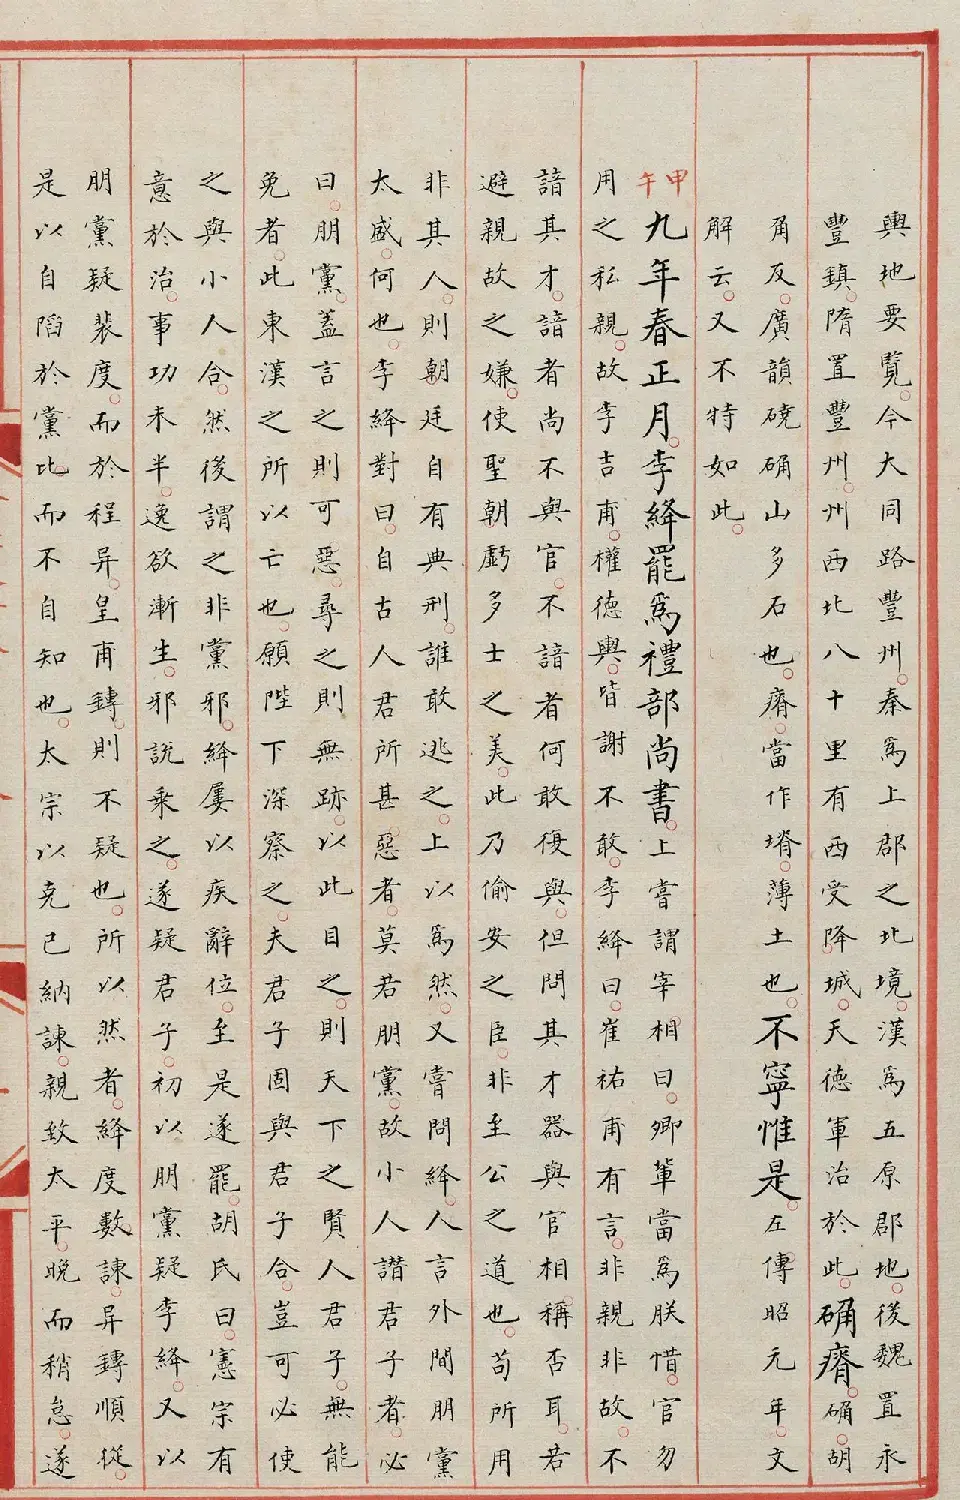 輿地要覽。今大同路豐州。秦爲上郡之北境。漢爲五原郡地。後魏置永
豐鎮。隋置豐州。州西北八十里有西受降城。天德軍治於此。确瘠。确。胡
角反。廣韻磽确山多石也。瘠。當作塉。薄土也。不寧惟是。左傳昭元年。文
解云。又不特如此。
甲午
九年春正月。李絳罷爲禮部尚書。上嘗謂宰相曰。卿輩當爲朕惜。官勿
用之私親。故李吉甫。權德輿。皆謝不敢。李絳曰。崔祐甫有言。非親非故。不
諳其才。諳者尚不與官。不諳者何敢復與。但問其才器與官相稱否耳。若
避親故之嫌。使聖朝虧多士之美。此乃偷安之臣。非至公之道也。苟所用
非其人。則朝廷自有典刑。誰敢逃之。上以爲然。又嘗問絳。人言外間朋黨
太盛。何也。李絳對曰。自古人君所甚惡者。莫若朋黨。故小人譖君子者。必
曰。朋黨。蓋言之則可惡。尋之則無跡。以此目之。則天下之賢人君子。無能
免者。此東漢之所以亡也。願陛下深察之。夫君子固與君子合。豈可必使
之與小人合。然後謂之非黨邪。絳屢以疾辭位。至是遂罷。胡氏曰。憲宗有
意於治。事功未半。逸欲漸生。邪說乘之。遂疑君子。初以朋黨疑李絳。又以
朋黨疑裴度。而於程异。皇甫鎛。則不疑也。所以然者。絳度數諫。异鎛順從。
是以自陷於黨比而不自知也。太宗以克己納諫。親致太平。晚而稍怠。遂